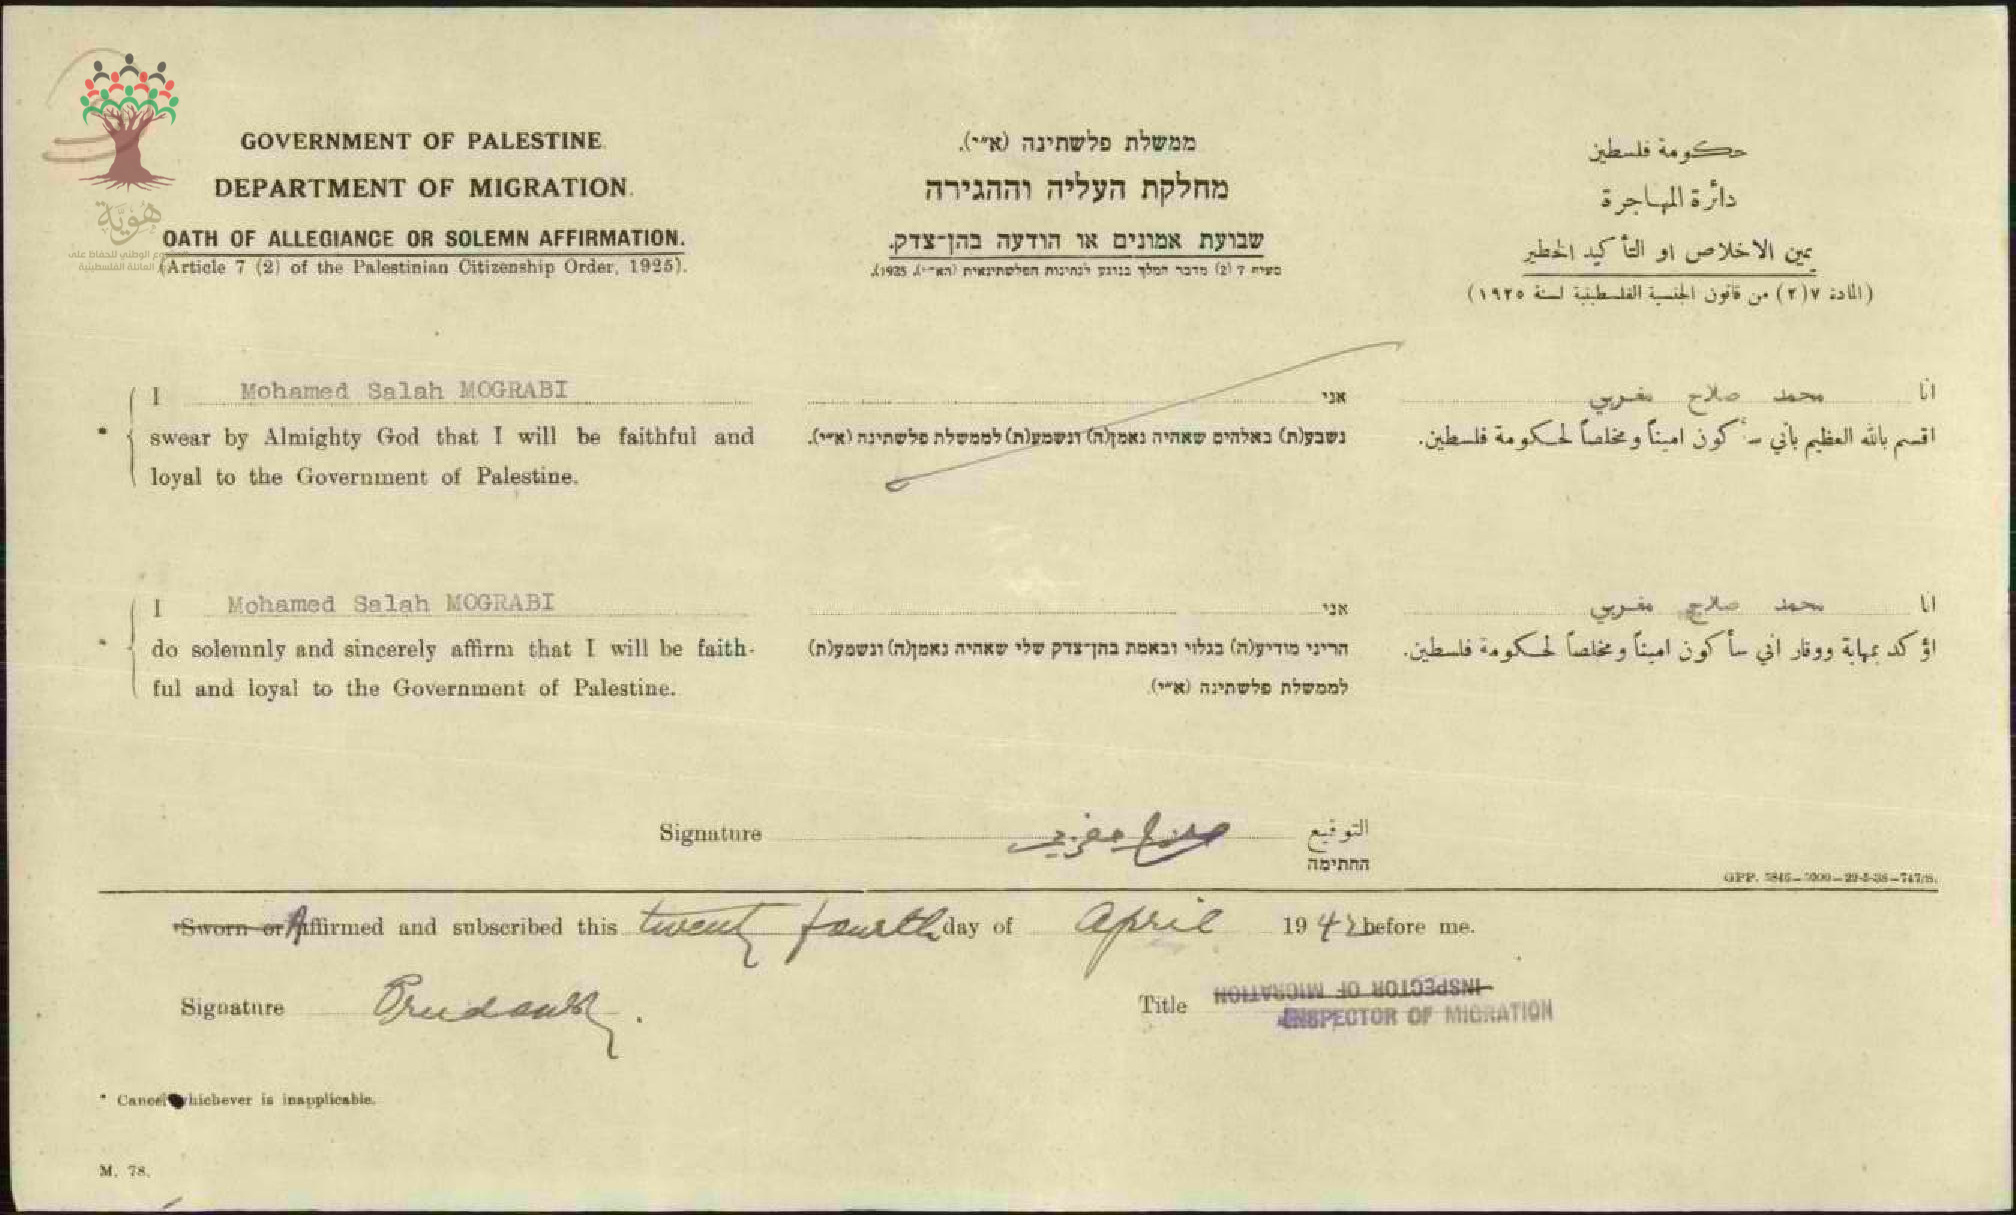 هويّة
المشروع الوطني للحفاظ على
العائلة الفلسطينية
GOVERNMENT OF PALESTINE.
DEPARTMENT OF MIGRATION.
OATH OF ALLEGIANCE OR SOLEMN AFFIRMATION.
(Article 7 (2) of the Palestinian Citizenship Order, 1925).
ממשלת פלשתינה (א״י).
מחלקת העליה וההגירה
שבועת אמונים או הודעה בהן־צדק.
סעיף 7 (2) מדבר המלך בנוגע לנתינות הפלשתינאית (הא״י), 1925).
حكومة فلسطين
دائرة المهاجرة
يمين الاخلاص او التأكيد الخطير
(المادة ٧(٢) من قانون الجنسية الفلسطينية لسنة ١٩٢٥)
I Mohamed Salah MOGRABI
* swear by Almighty God that I will be faithful and
loyal to the Government of Palestine.
אני
נשבע(ת) באלהים שאהיה נאמן(ה) ונשמע(ת) לממשלת פלשתינה (א״י).
انا محمد صلاح مغربي
اقسم بالله العظيم بأني سأكون اميناً ومخلصاً لحكومة فلسطين.
I Mohamed Salah MOGRABI
* do solemnly and sincerely affirm that I will be faith-
ful and loyal to the Government of Palestine.
אני
הריני מודיע(ה) בגלוי ובאמת בהן־צדק שלי שאהיה נאמן(ה) ונשמע(ת)
לממשלת פלשתינה (א״י).
انا محمد صلاح مغربي
اؤكد بمهابة ووقار اني سأكون اميناً ومخلصاً لحكومة فلسطين.
Signature صلاح مغربي التوقيع
החתימה
GPP. 5845—5000—29-5-38—747/S.
*Sworn or Affirmed and subscribed this twenty fourth day of April 1942 before me.
Signature Title INSPECTOR OF MIGRATION
INSPECTOR OF MIGRATION
* Cancel whichever is inapplicable.
M. 78.